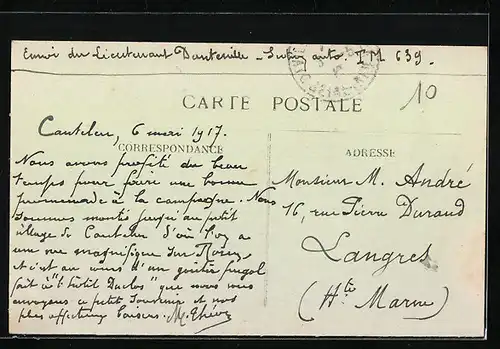 Envoi du Lieutenant Danteville - auto. T M 639.
10
CARTE POSTALE
Canteleu, 6 mai 1917.
CORRESPONDANCE
ADRESSE
Nous avons profité du beau
temps pour faire une bonne
promenade à la campagne. Nous
sommes montés jusqu'au petit
village de Canteleu d'où l'on a
une vue magnifique sur Rouen,
et c'est au cours d'un goûter frugal
fait à "l'hôtel Duclos" que nous vous
envoyons ce petit souvenir et nos
plus affectueux baisers. M.
Monsieur M. André
16, rue Pierre Durand
Langres
(Hte Marne)